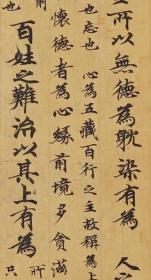 所以無德為耽染有為人
也忘也 心為五藏百行之主故稱為上
懷德者為心緣前境多貪滋
百姓之難治以其上有為